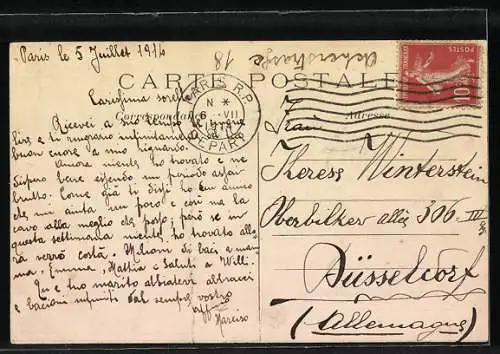 Paris le 5 Juillet 1914
Ackerstrasse
18
CARTE POSTALE
Correspondance
Adresse
PARIS R.P.
N *
6 - VII
DEPART
POSTES
10
Carissima sorella
Ricevei a suo tempo le
lire e ti ringrazio infinitamente del
buon cuore a mio riguardo.
Ancora niente ho trovato e ne
dispero bene essendo un periodo assai
brutto. Come già ti dissi ho un amico
che mi aiuta un poco e così me la
cavo alla meglio che posso; però se in
questa settimana niente ho trovato allo-
ra verrò costà. Milioni di baci a mam-
ma, Emma, Mattia e Saluti a Willi.
Tu e tuo marito abbiatevi abbracci
e bacioni infiniti dal sempre vostro
Narciso
Frau
Winterstein
Oberbilker allée 306 III
Düsseldorf
(Allemagne)